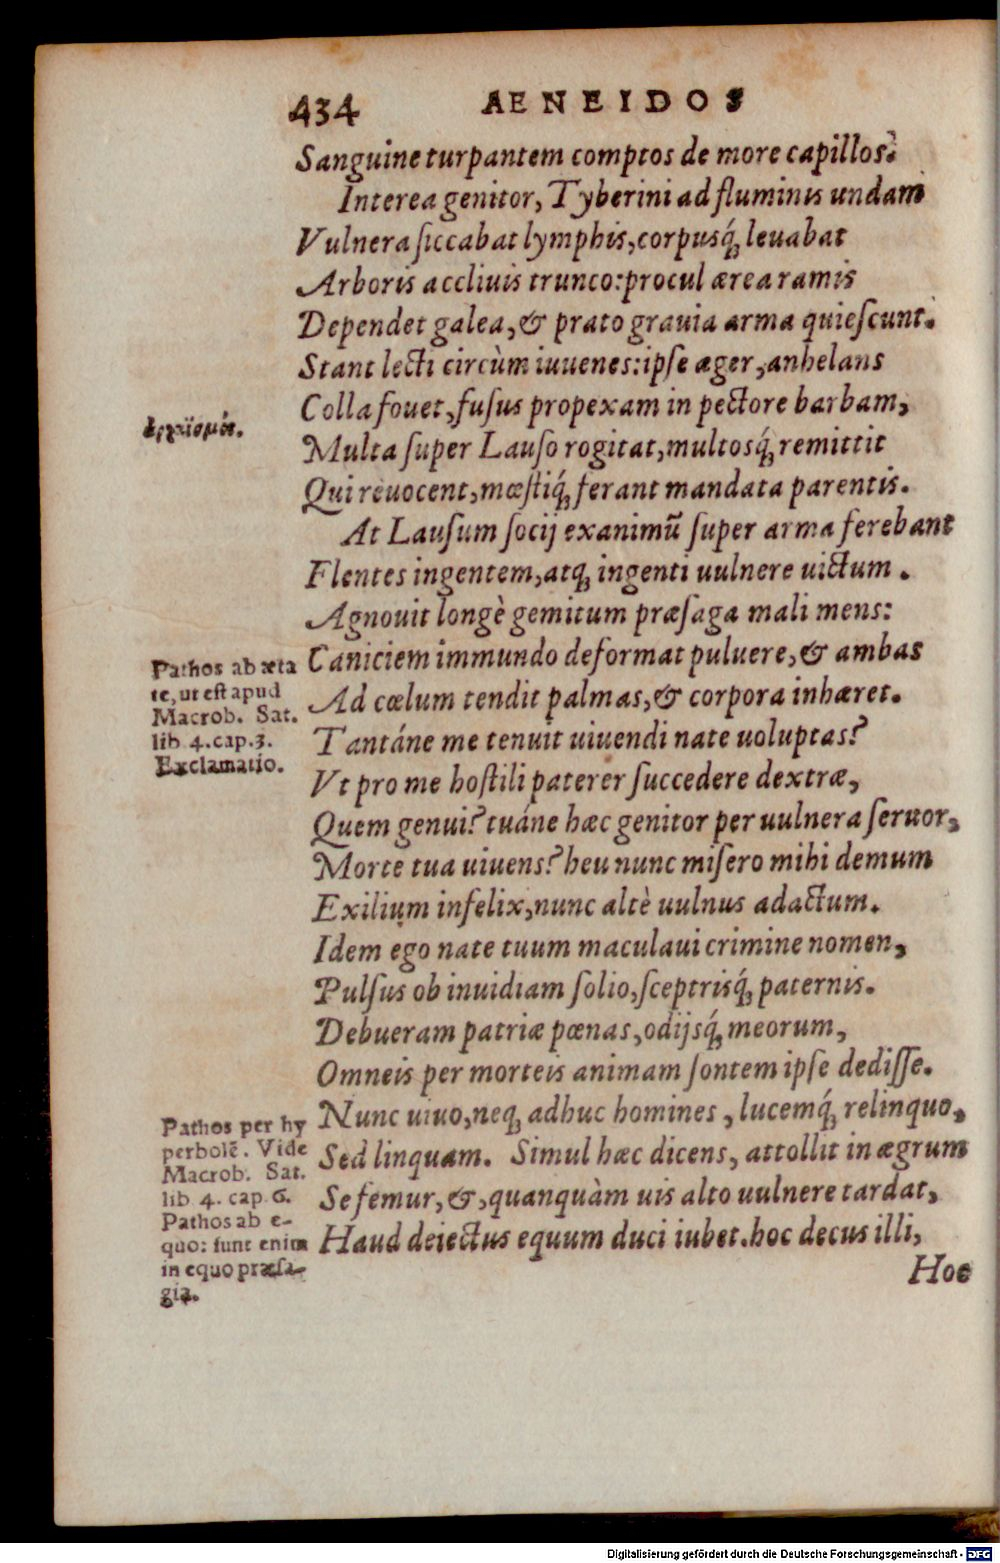 434 AENEIDOS
Sanguine turpantem comptos de more capillos?
Interea genitor, Tyberini ad fluminis undam
Vulnera ſiccabat lymphis, corpusq́; leuabat
Arboris accliuis trunco: procul ærea ramis
Dependet galea, & prato grauia arma quieſcunt.
Stant lecti circùm iuuenes: ipſe æger, anhelans
Colla fouet, fuſus propexam in pectore barbam,
Multa ſuper Lauſo rogitat, multosq́; remittit
Qui reuocent, mœſtiq́; ferant mandata parentis.
At Lauſum ſocij exanimū ſuper arma ferebant
Flentes ingentem, atq; ingenti uulnere uictum.
Agnouit longè gemitum præſaga mali mens:
Caniciem immundo deformat puluere, & ambas
Ad cœlum tendit palmas, & corpora inhæret.
Tantáne me tenuit uiuendi nate uoluptas?
Vt pro me hoſtili paterer ſuccedere dextræ,
Quem genui? tuáne hæc genitor per uulnera ſeruor,
Morte tua uiuens? heu nunc miſero mihi demum
Exilium infelix, nunc altè uulnus adactum.
Idem ego nate tuum maculaui crimine nomen,
Pulſus ob inuidiam ſolio, ſceptrisq́; paternis.
Debueram patriæ pœnas, odijsq́; meorum,
Omneis per morteis animam ſontem ipſe dediſſe.
Nunc uiuo, neq; adhuc homines, lucemq́; relinquo,
Sed linquam. Simul hæc dicens, attollit in ægrum
Se femur, &, quanquàm uis alto uulnere tardat,
Haud deiectus equum duci iubet. hoc decus illi,
Hoc
Pathos ab æta
te, ut eſt apud
Macrob. Sat.
lib 4. cap. 3.
Exclamatio.
Pathos per hy
perbolē. Vide
Macrob. Sat.
lib 4. cap 6.
Pathos ab e-
quo: ſunt enim
in equo præſa-
gia.
Digitalisierung gefördert durch die Deutsche Forschungsgemeinschaft - DFG